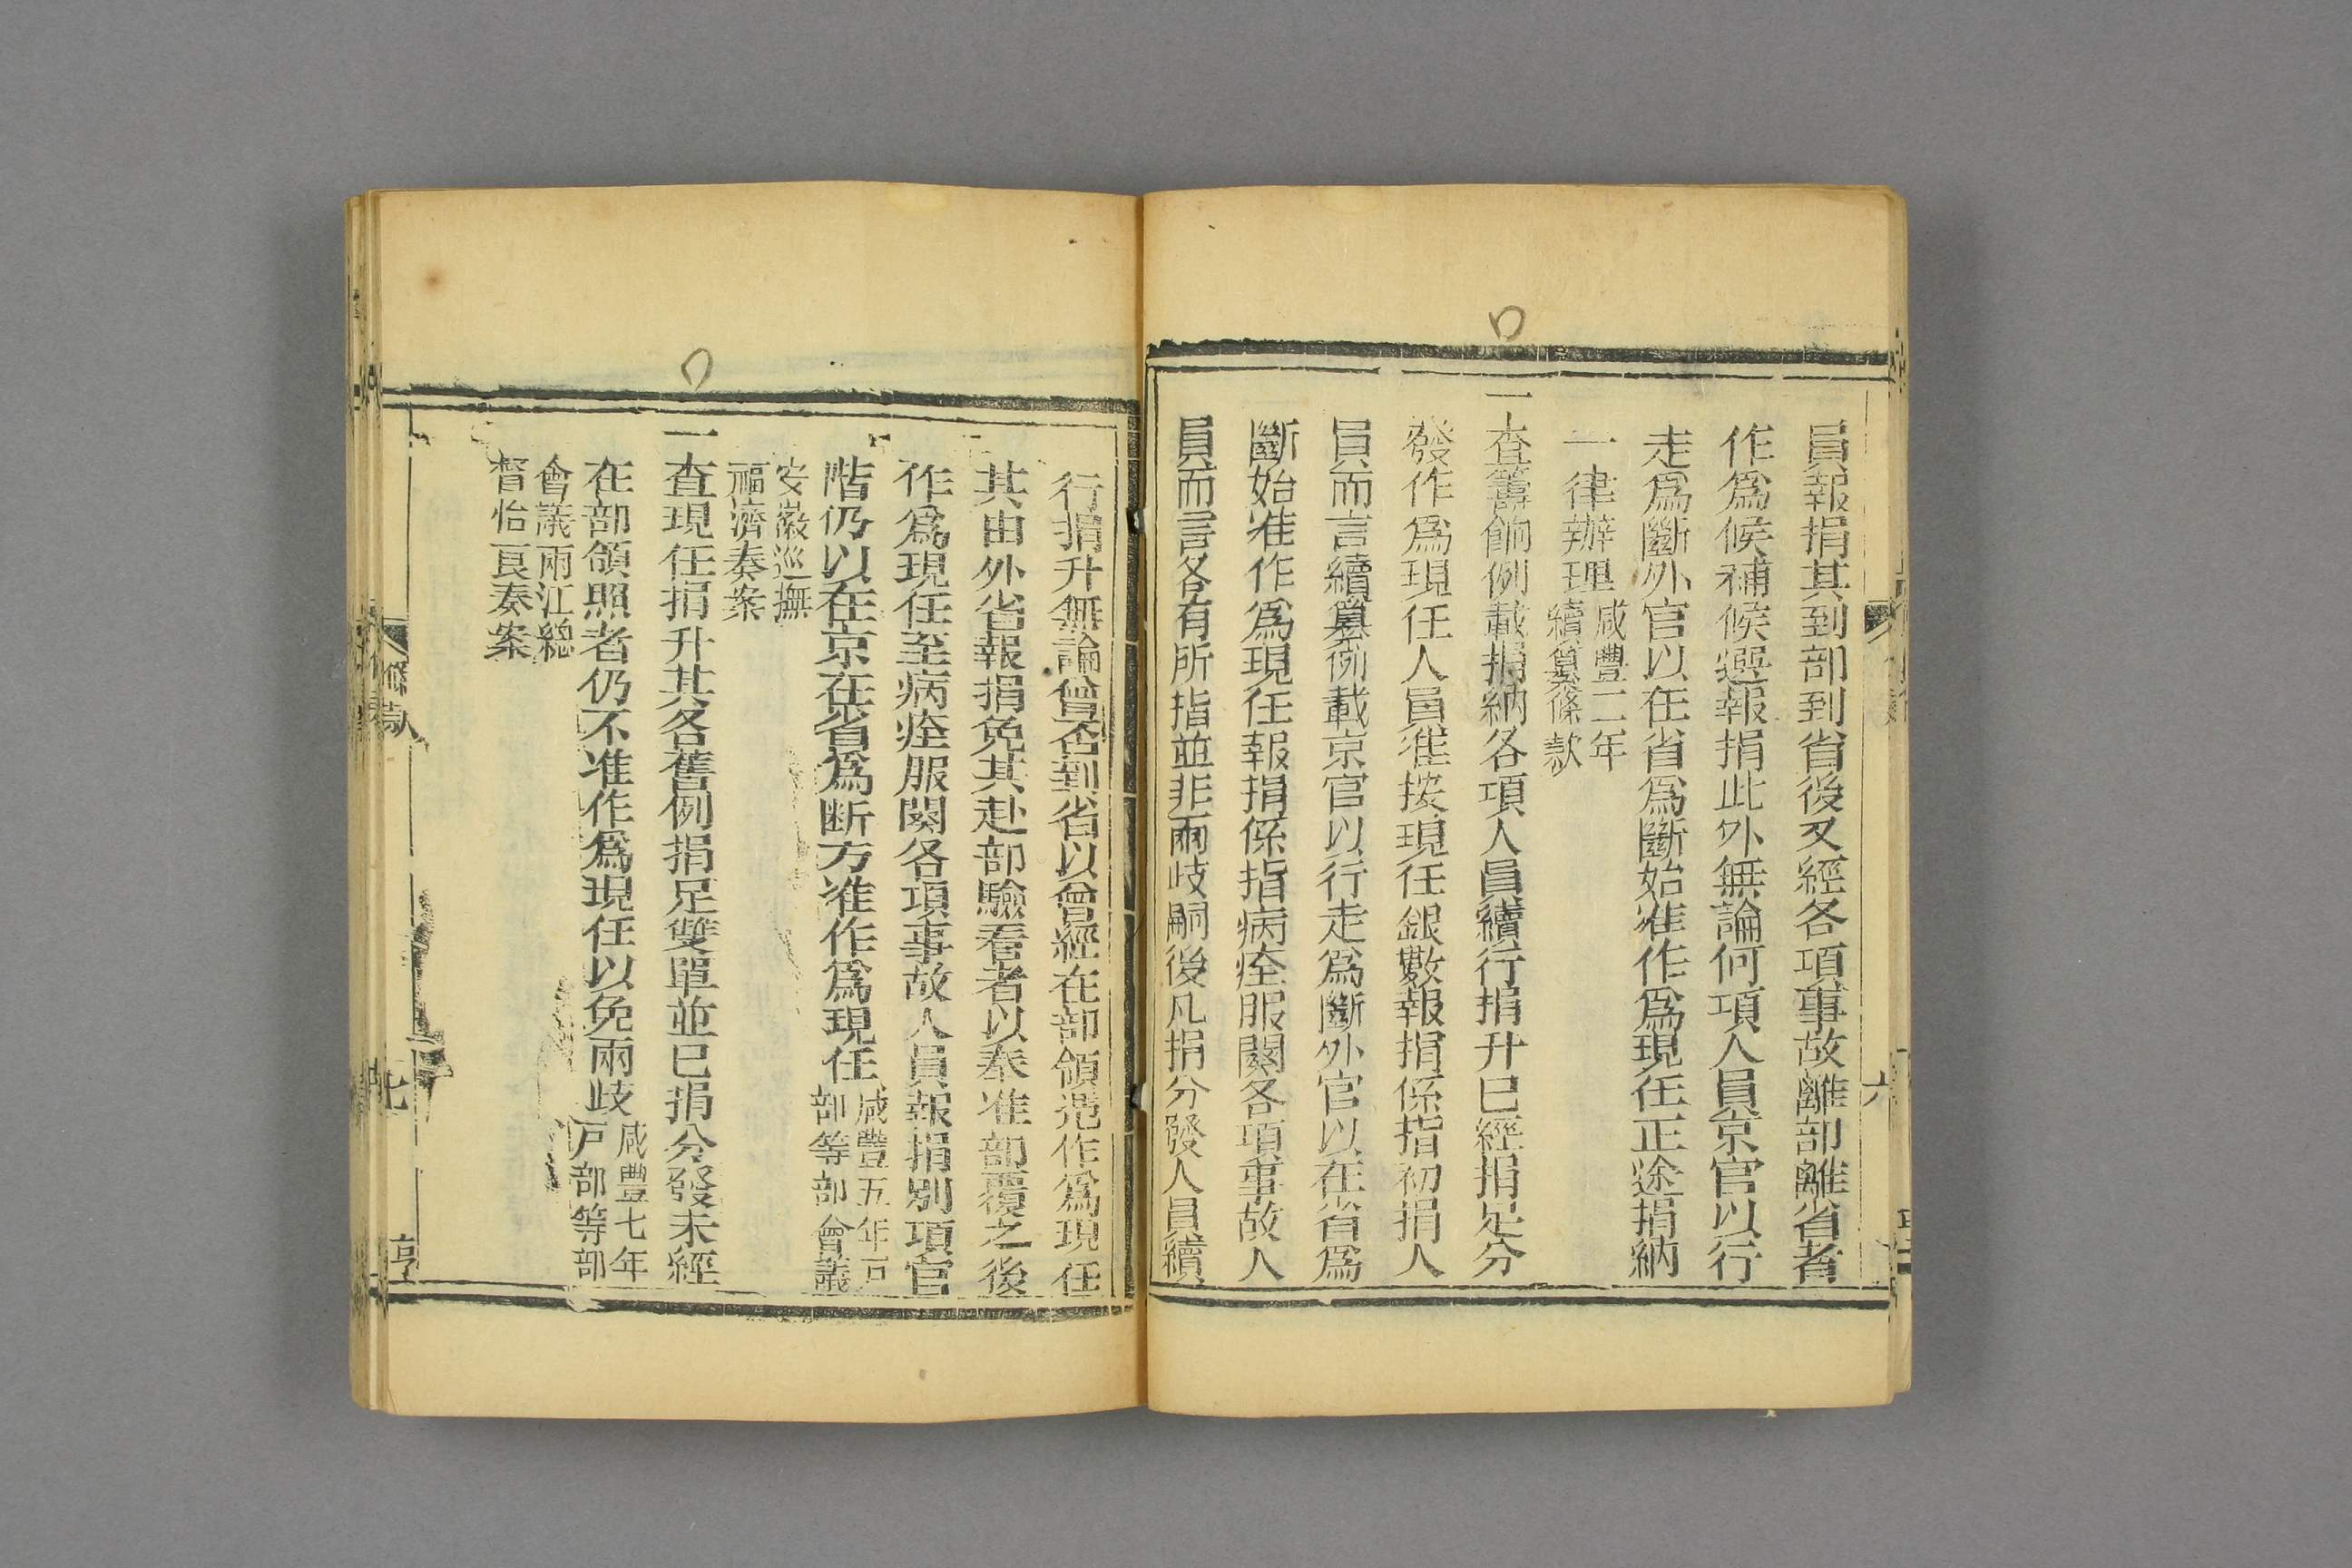 員報捐其到部到省後又經各項事故離部離省者
作爲候補候選報捐此外無論何項人員京官以行
走爲斷外官以在省爲斷始准作爲現任正途捐納
一律辦理咸豐二年
續纂條款
一查籌餉例載捐納各項人員續行捐升已經捐足分
發作爲現任人員准按現任銀數報捐係指初捐人
員而言續纂例載京官以行走爲斷外官以在省爲
斷始准作爲現任報捐係指病痊服闋各項事故人
員而言各有所指並非兩歧嗣後凡捐分發人員續
六
行捐升無論曾否到省以曾經在部領憑作爲現任
其由外省報捐免其赴部驗看者以奉准部覆之後
作爲現任至病痊服闋各項事故人員報捐別項官
階仍以在京在省爲断方准作爲現任咸豐五年戸
部等部會議
安徽巡撫
福濟奏案
一查現任捐升其各舊例捐足雙單並已捐分發未經
在部領照者仍不准作爲現任以免兩歧咸豐七年
戸部等部
會議兩江總
督怡良奏案
條款
七
亨